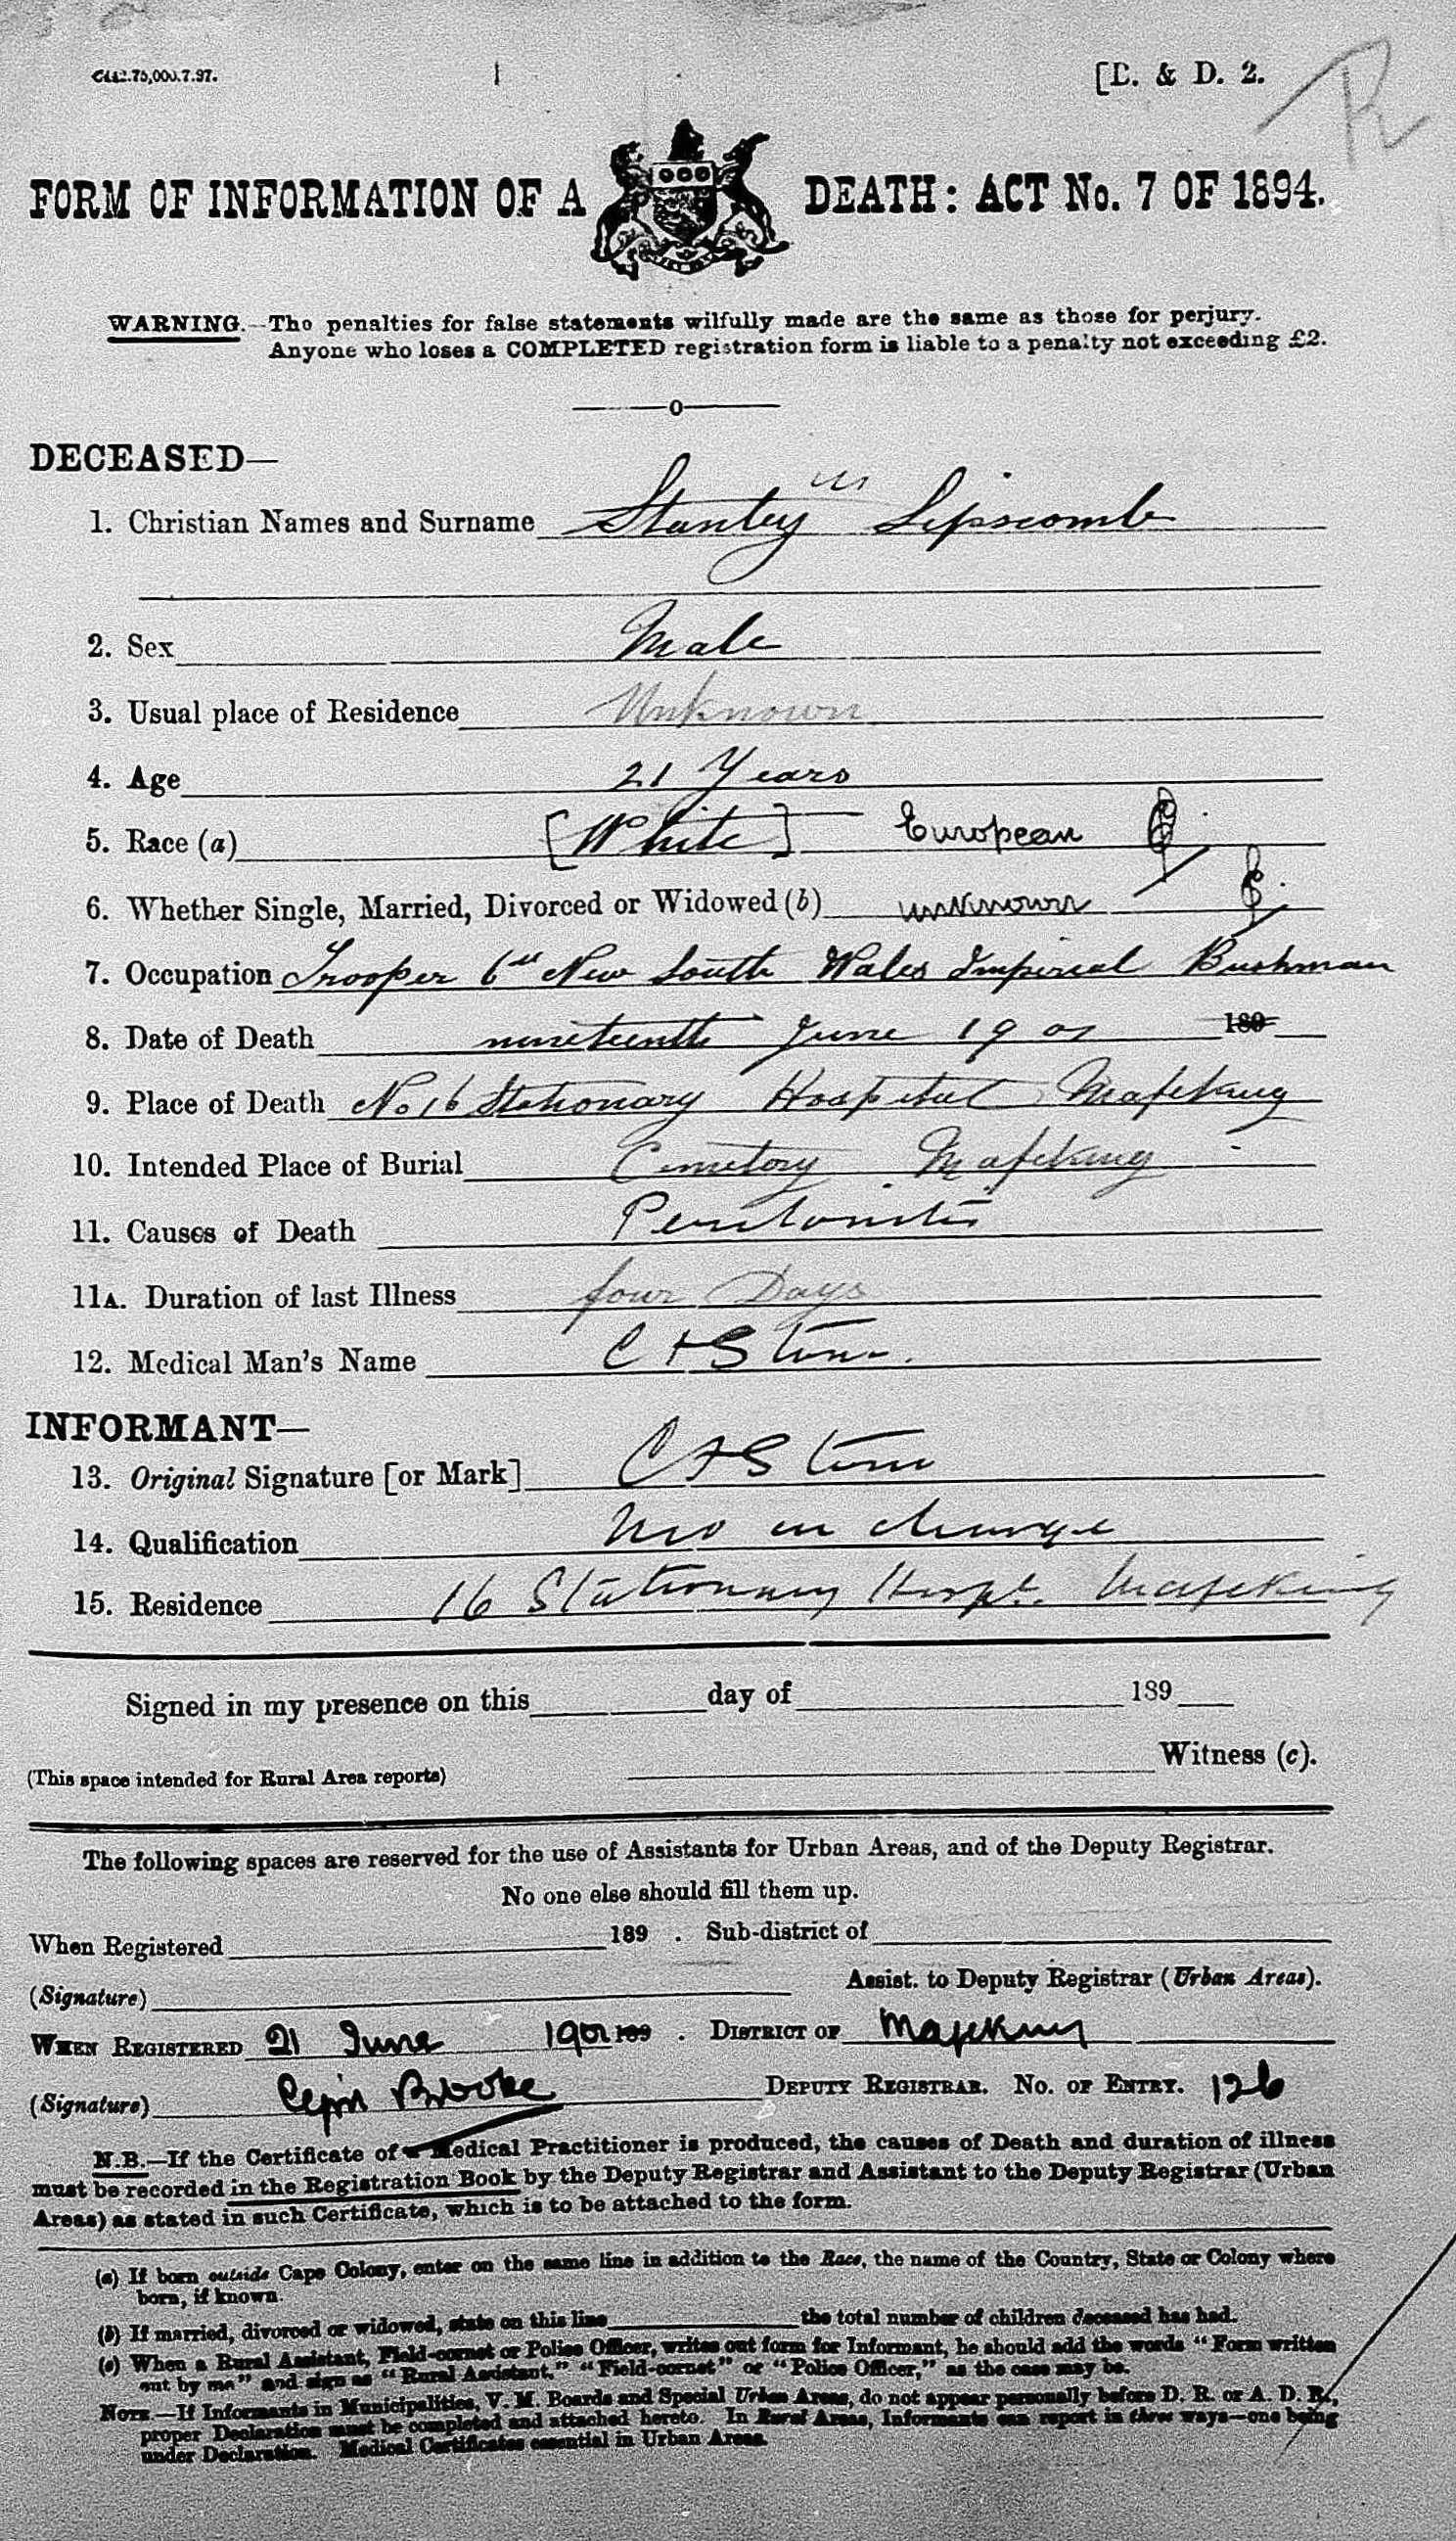 C112.75,000.7.97.
[B. & D. 2.
R
FORM OF INFORMATION OF A DEATH: ACT No. 7 OF 1894.
WARNING.—The penalties for false statements wilfully made are the same as those for perjury.
Anyone who loses a COMPLETED registration form is liable to a penalty not exceeding £2.
DECEASED—
1. Christian Names and Surname Stanley Lipscomb
2. Sex Male
3. Usual place of Residence Unknown
4. Age 21 Years
5. Race (a) [White] European
6. Whether Single, Married, Divorced or Widowed (b) unknown
7. Occupation Trooper 6th New South Wales Imperial Bushman
8. Date of Death nineteenth June 1901 189
9. Place of Death No 16 Stationary Hospital Mafeking
10. Intended Place of Burial Cemetery Mafeking
11. Causes of Death Peritonitis
11A. Duration of last Illness four Days
12. Medical Man's Name
INFORMANT—
13. Original Signature [or Mark]
14. Qualification MO in charge
15. Residence 16 Stationary Hospt. Mafeking
Signed in my presence on this day of 189
Witness (c).
(This space intended for Rural Area reports)
The following spaces are reserved for the use of Assistants for Urban Areas, and of the Deputy Registrar.
No one else should fill them up.
When Registered 189 . Sub-district of
(Signature) Assist. to Deputy Registrar (Urban Areas).
WHEN REGISTERED 21 June 1901 189 . DISTRICT OF Mafeking
(Signature) Brooke DEPUTY REGISTRAR. NO. OF ENTRY. 126
N.B.—If the Certificate of a Medical Practitioner is produced, the causes of Death and duration of illness
must be recorded in the Registration Book by the Deputy Registrar and Assistant to the Deputy Registrar (Urban
Areas) as stated in such Certificate, which is to be attached to the form.
(a) If born outside Cape Colony, enter on the same line in addition to the Race, the name of the Country, State or Colony where
born, if known.
(b) If married, divorced or widowed, state on this line the total number of children deceased has had.
(c) When a Rural Assistant, Field-cornet or Police Officer, writes out form for Informant, he should add the words "Form written
out by me" and sign as "Rural Assistant," "Field-cornet" or "Police Officer," as the case may be.
NOTE.—If Informants in Municipalities, V. M. Boards and Special Urban Areas, do not appear personally before D. R. or A. D. R.,
proper Declaration must be completed and attached hereto. In Rural Areas, Informants can report in three ways—one being
under Declaration. Medical Certificates essential in Urban Areas.